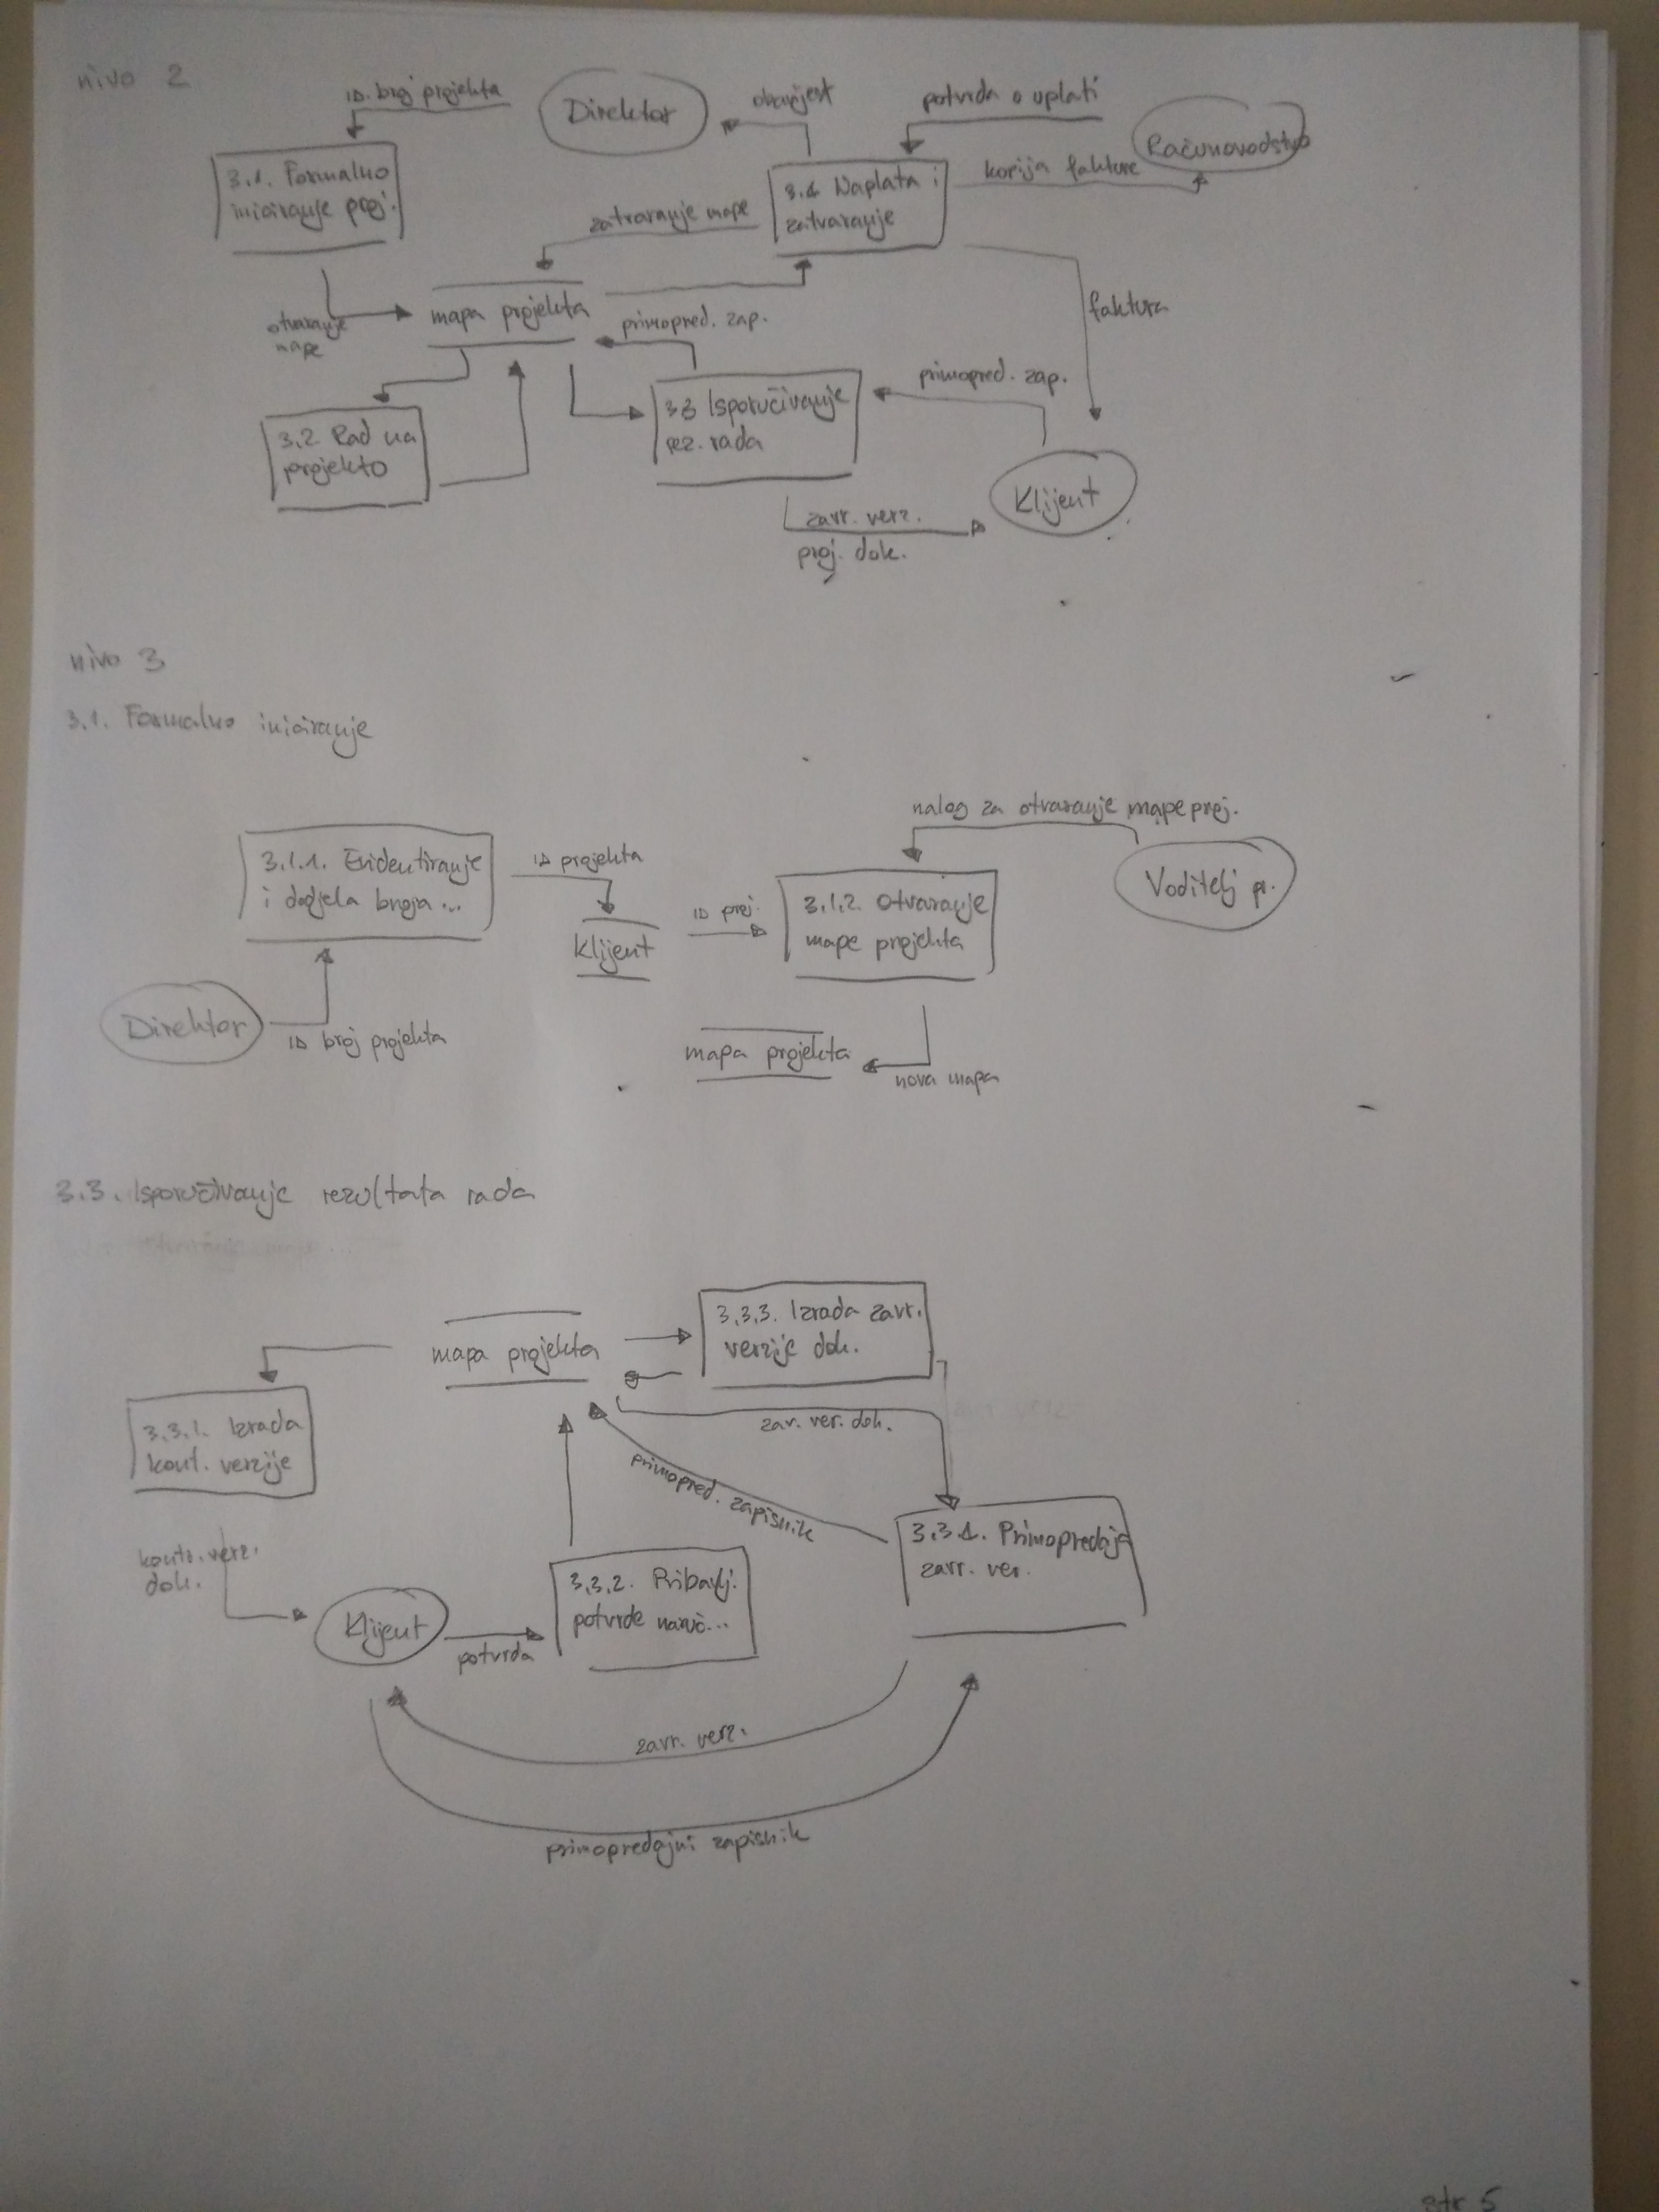 nivo 2
ID. broj projekta
Direktor
obavjest
potvrda o uplati
Računovodstvo
3.1. Formalno
iniciranje proj.
3.4 Naplata i
zatvaranje
kopija fakture
zatvaranje mape
otvaranje
mape
mapa projekta
primopred. zap.
faktura
3.2 Rad na
projektu
3.3 Isporučivanje
rez. rada
primopred. zap.
Klijent
zavr. verz.
proj. dok.
nivo 3
3.1. Formalno iniciranje
nalog za otvaranje mape proj.
3.1.1. Evidentiranje
i dodjela broja ...
ID projekta
Klijent
ID proj.
3.1.2. Otvaranje
mape projekta
Voditelj pr.
Direktor
ID broj projekta
mapa projekta
nova mapa
3.3. Isporučivanje rezultata rada
mapa projekta
3.3.3. Izrada zavr.
verzije dok.
3.3.1. Izrada
kont. verzije
zav. ver. dok.
primopred. zapisnik
3.3.4. Primopredaja
zavr. ver.
kontr. verz.
dok.
Klijent
potvrda
3.3.2. Pribavlj.
potvrde naruč...
zavr. verz.
primopredajni zapisnik
str 5